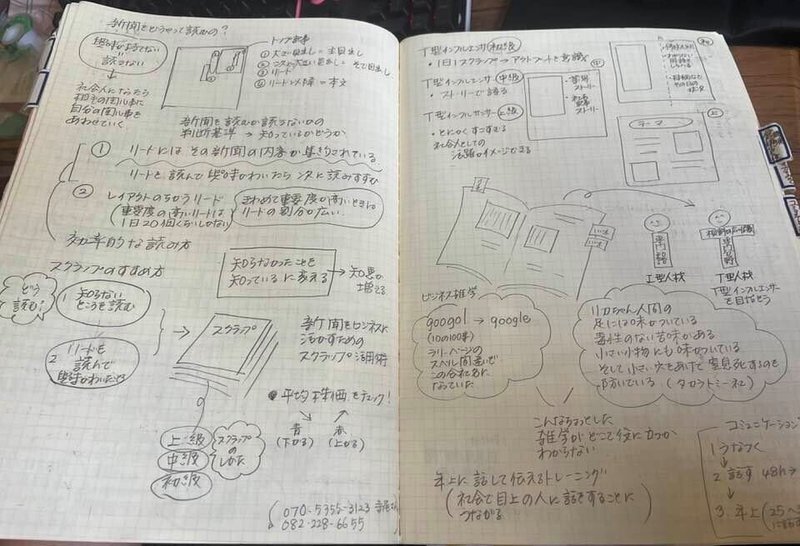 新聞をどうやって読むの？
興味が持てない
読まない
社会人になったら
相手の関心事に
自分の関心事を
あわせていく
トップ記事
① 大きい見出し＝主見出し
② 二つ大きい見出し＝そで見出し
③ リード
④ リード以降＝本文
新聞を読むか読まないかの
判断基準→知っているかどうか
① リードにはその新聞の内容が集約されている
リードを読んで興味がわいたら次に読みすすむ
② レイアウトのちがうリード
(重要度の高いリードは
1日20個くらいしかない)
きわめて重要度が高いときには
リードの割合が広い
効率的な読み方
スクラップのすすめ方
どう
読む？
1 知らない
ところを読む
2 リードを
読んで
興味がわいたとき
スクラップ
知らなかったことを
知っているに変える
→知恵が
増える
新聞をビジネスに
活かすための
スクラップ活用術
●平均株価をチェック！
青
(下がる)
赤
(上がる)
上級
中級
初級
スクラップ
のしかた
070-5355-3123
082-228-6655
T型インフルエンサ 初級
・1日1スクラップ→アウトプットを意識
T型インフルエンサ 中級
・ストーリーで語る
T型インフルエンサー 上級
・とにかくすごすぎる
社会人としての
活躍がイメージできる
中
ストーリー
ストーリー
初
上
テーマ
いいね
いいね
専門知識
I型人材
専門分野
T型人材
T型インフルエンサー
を目指そう
ビジネス雑学
googol → google
(10の100乗)
ラリーペイジの
スペル間違いで
この会社名に
なっていた
リカちゃん人間の
足には味がついている
毒性のない苦味がある
小さい小物にも味がついている
そして小さい穴をあけて窒息死するのを
防いでいる (タカラトミー社)
こんなちょっとした
雑学がどこで役に立つか
わからない
年上に話して伝えるトレーニング
(社会で目上の人に話をすることに
つながる
コミュニケーション
1 うなづく
↓
2 話す 48h
↓
3. 年上(25